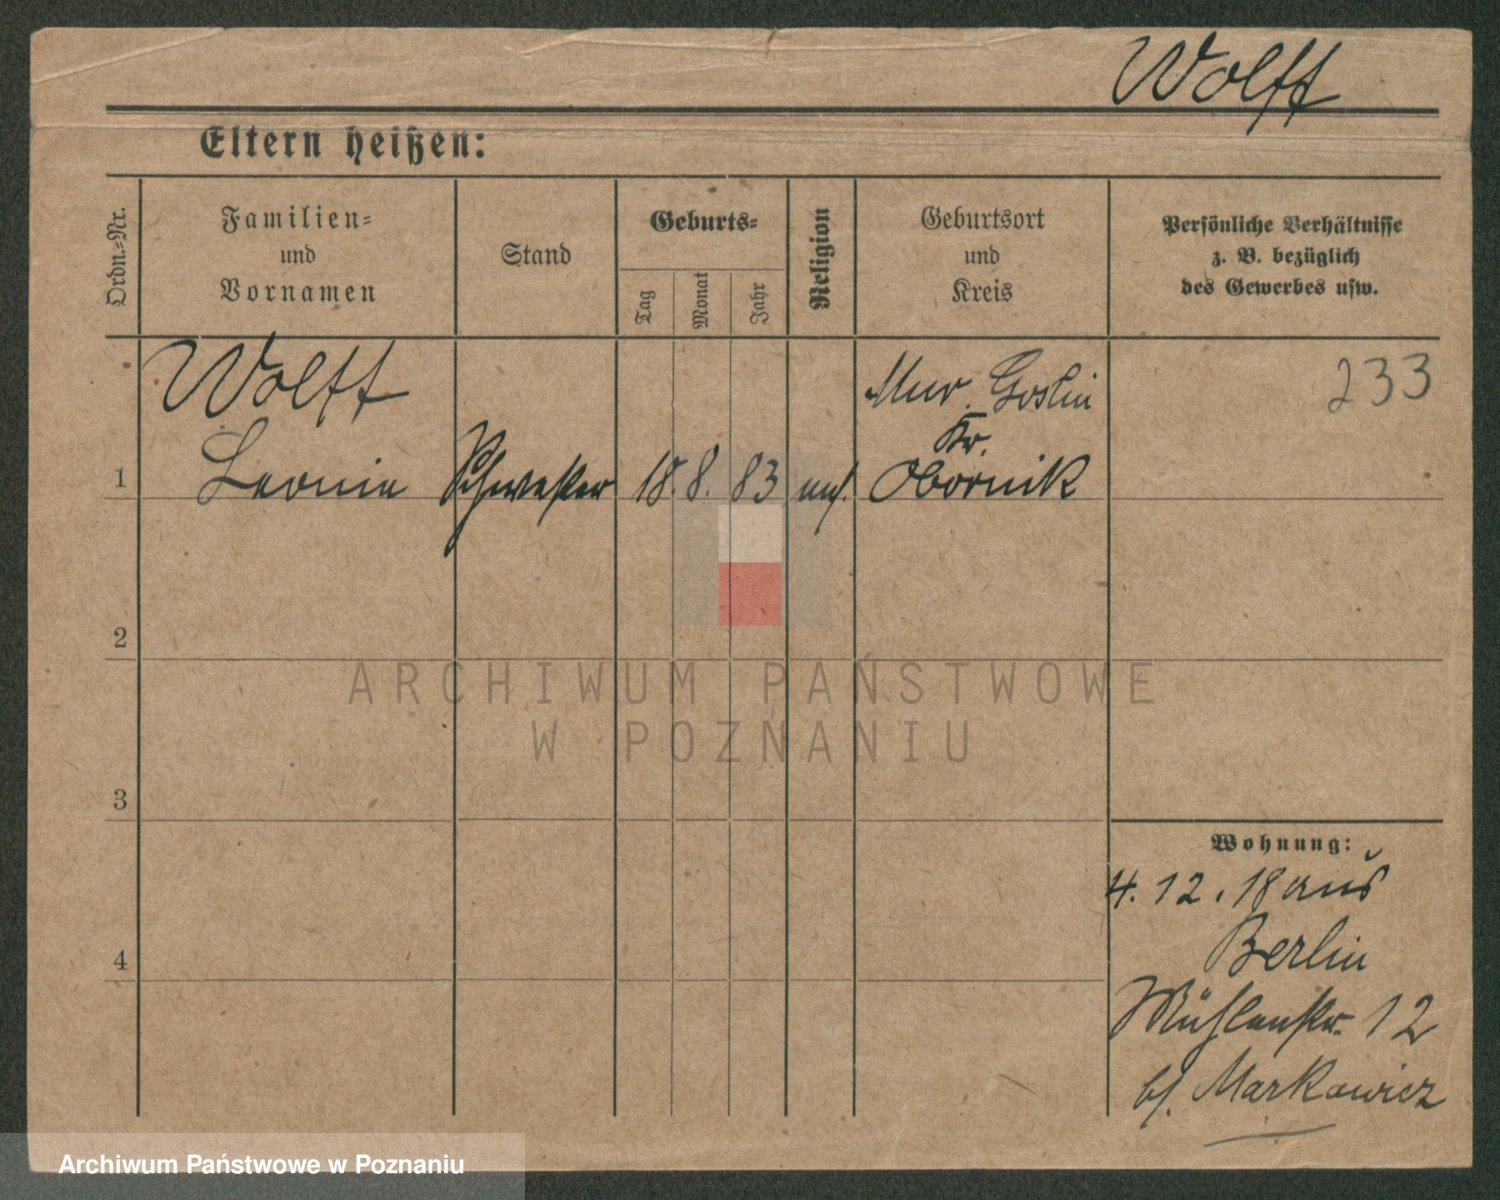 Wolff
Eltern heißen:
Ordn.-Nr.
Familien-
und
Vornamen
Stand
Geburts-
Tag
Monat
Jahr
Religion
Geburtsort
und
Kreis
Persönliche Verhältnisse
z. B. bezüglich
des Gewerbes usw.
233
Wolff
Leonie
Schwester
18. 8. 83
Mur. Goslin
Kr.
Obornik
1
2
3
4
ARCHIWUM PAŃSTWOWE
W POZNANIU
Wohnung:
4. 12. 18 aus
Berlin
Mühlenstr. 12
b/. Markowicz
Archiwum Państwowe w Poznaniu